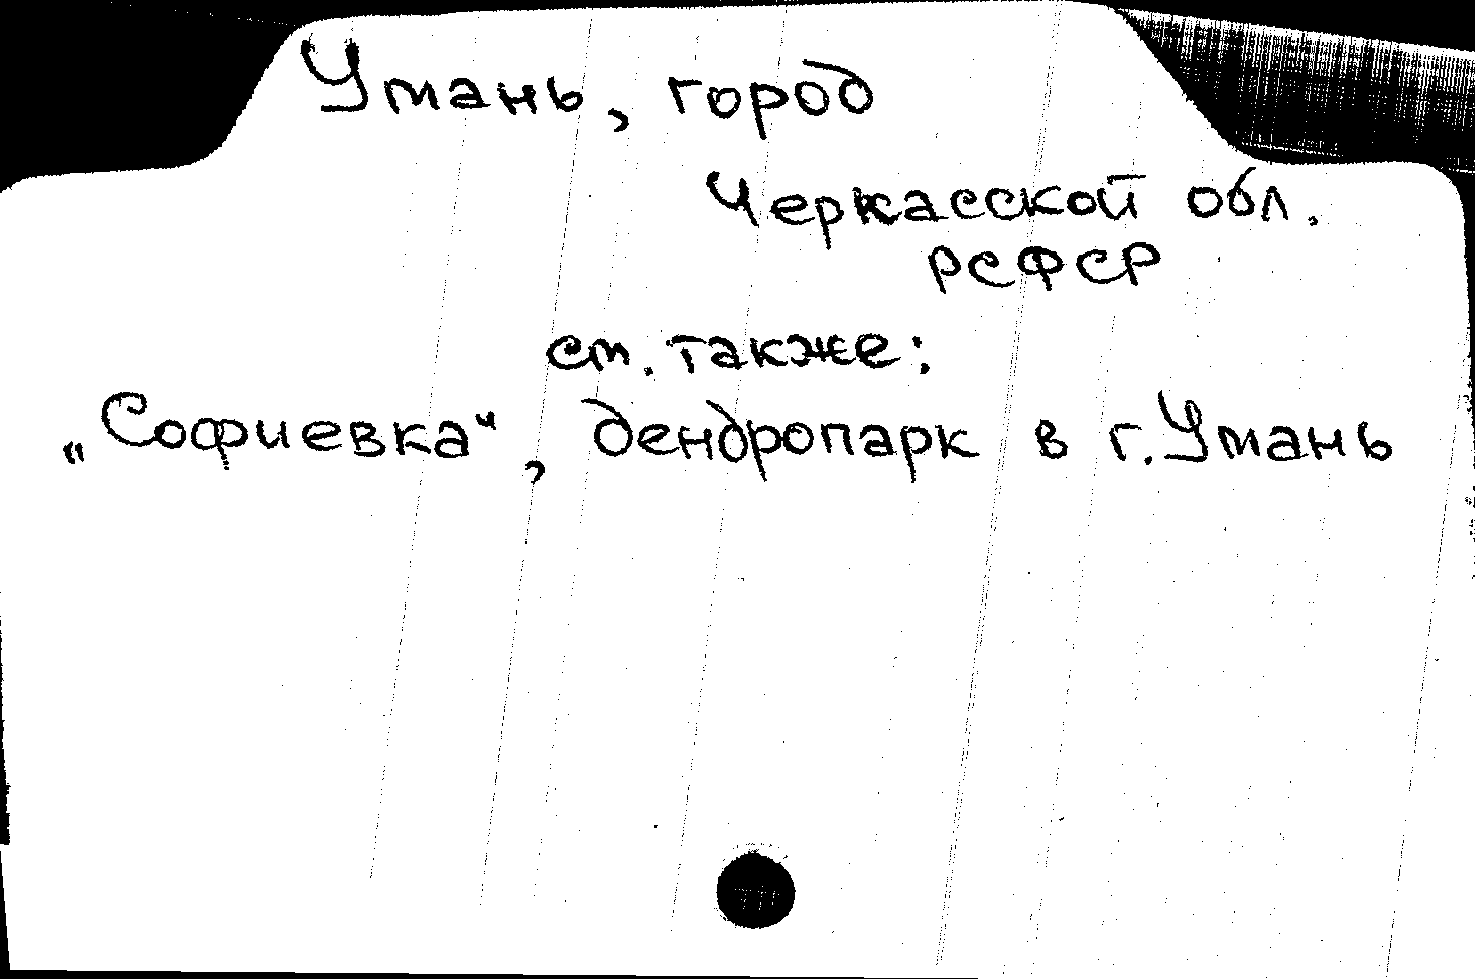 Умань, город
Черкасской обл.
РСФСР
см. также:
„Софиевка“, дендропарк в г. Умань